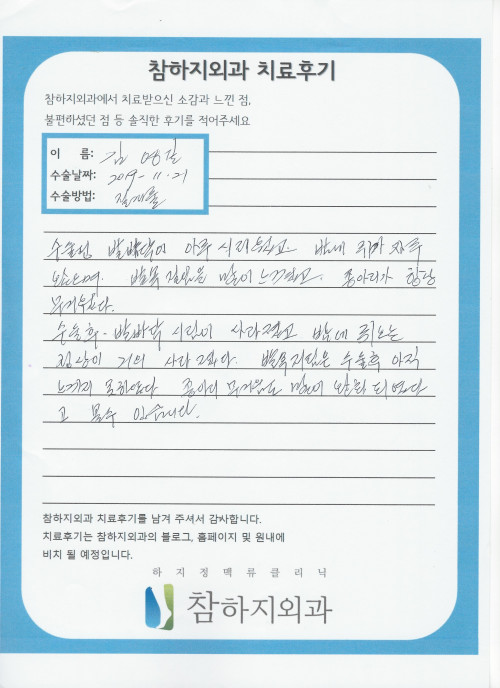 참하지외과 치료후기
참하지외과에서 치료받으신 소감과 느낀 점,
불편하셨던 점 등 솔직한 후기를 적어주세요
이 름: 김 영길
수술날짜: 2019-11-21
수술방법:
수술전 발바닥이 아주 시리웠고 밤에 쥐가 자주
났으며. 발목 저림을 많이 느꼈고. 종아리가 항상
무거웠다.
수술후. 발바닥 시림이 사라졌고 밤에 쥐나는
현상이 거의 사라졌다. 발목저림은 수술후 아직
느끼지 못하였다 종아리 무거움도 많이 완화 되였다
고 볼수 있습니다.
참하지외과 치료후기를 남겨 주셔서 감사합니다.
치료후기는 참하지외과의 블로그, 홈페이지 및 원내에
비치 될 예정입니다.
하지정맥류클리닉
참하지외과